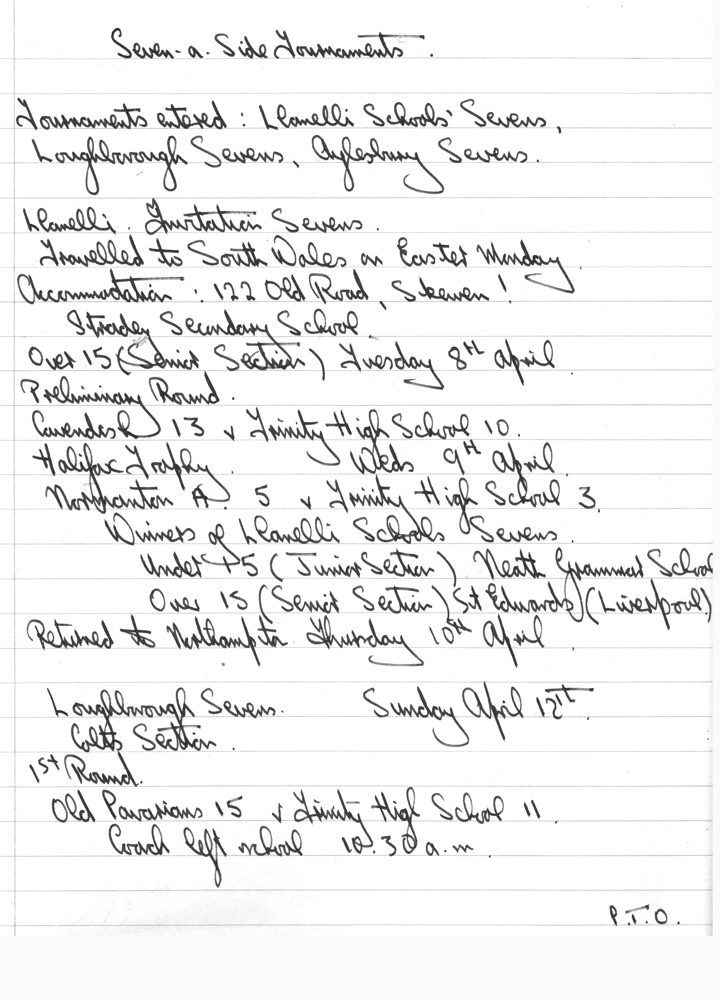 Seven-a-Side Tournaments.
Tournaments entered : Llanelli Schools' Sevens,
Loughborough Sevens, Aylesbury Sevens.
Llanelli. Invitation Sevens.
Travelled to South Wales on Easter Monday.
Accommodation : 122 Old Road, Skewen!
Stradey Secondary School.
Over 15 (Senior Section) Tuesday 8th April.
Preliminary Round.
Cavendish 13 v Trinity High School 10.
Halifax Trophy. Weds 9th April.
Normanton A. 5 v Trinity High School 3.
Winners of Llanelli Schools Sevens.
Under 15 (Junior Section) Neath Grammar School
Over 15 (Senior Section) St Edwards (Liverpool)
Returned to Northampton Thursday 10th April.
Loughborough Sevens. Sunday April 12th.
Colts Section.
1st Round.
Old Pavarians 15 v Trinity High School 11.
Coach left school 10.30 a.m.
P.T.O.